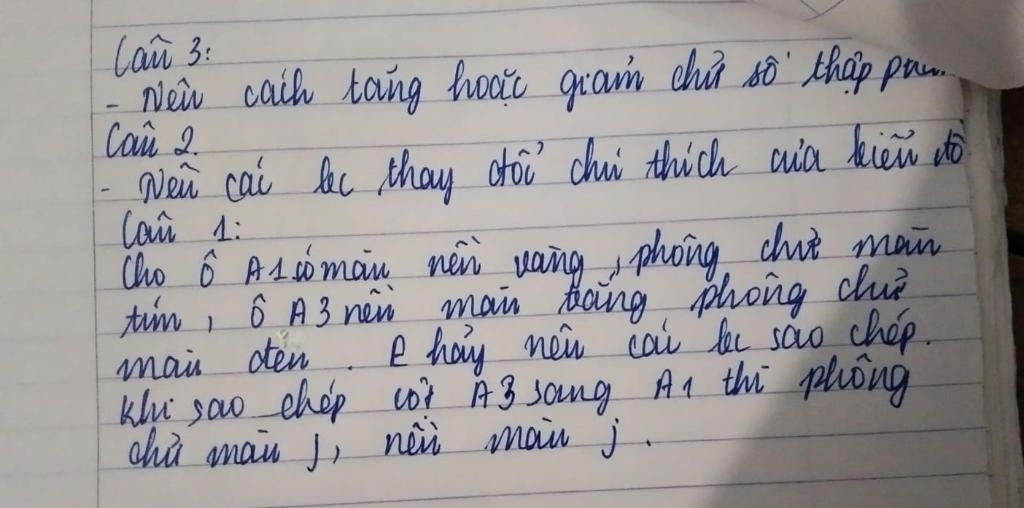 Câu 3:
- Nêu cách tăng hoặc giảm chữ số thập
Câu 2.
- Nêu các bc thay đổi chú thích của biểu đồ
Câu 1:
Cho ô A1 có màu nền vàng, phông chữ màu
tím, ô A3 nền màu trắng phông chữ
màu đen. E hãy nêu các bc sao chép.
Khi sao chép cột A3 sang A1 thì phông
chữ màu j, nền màu j.